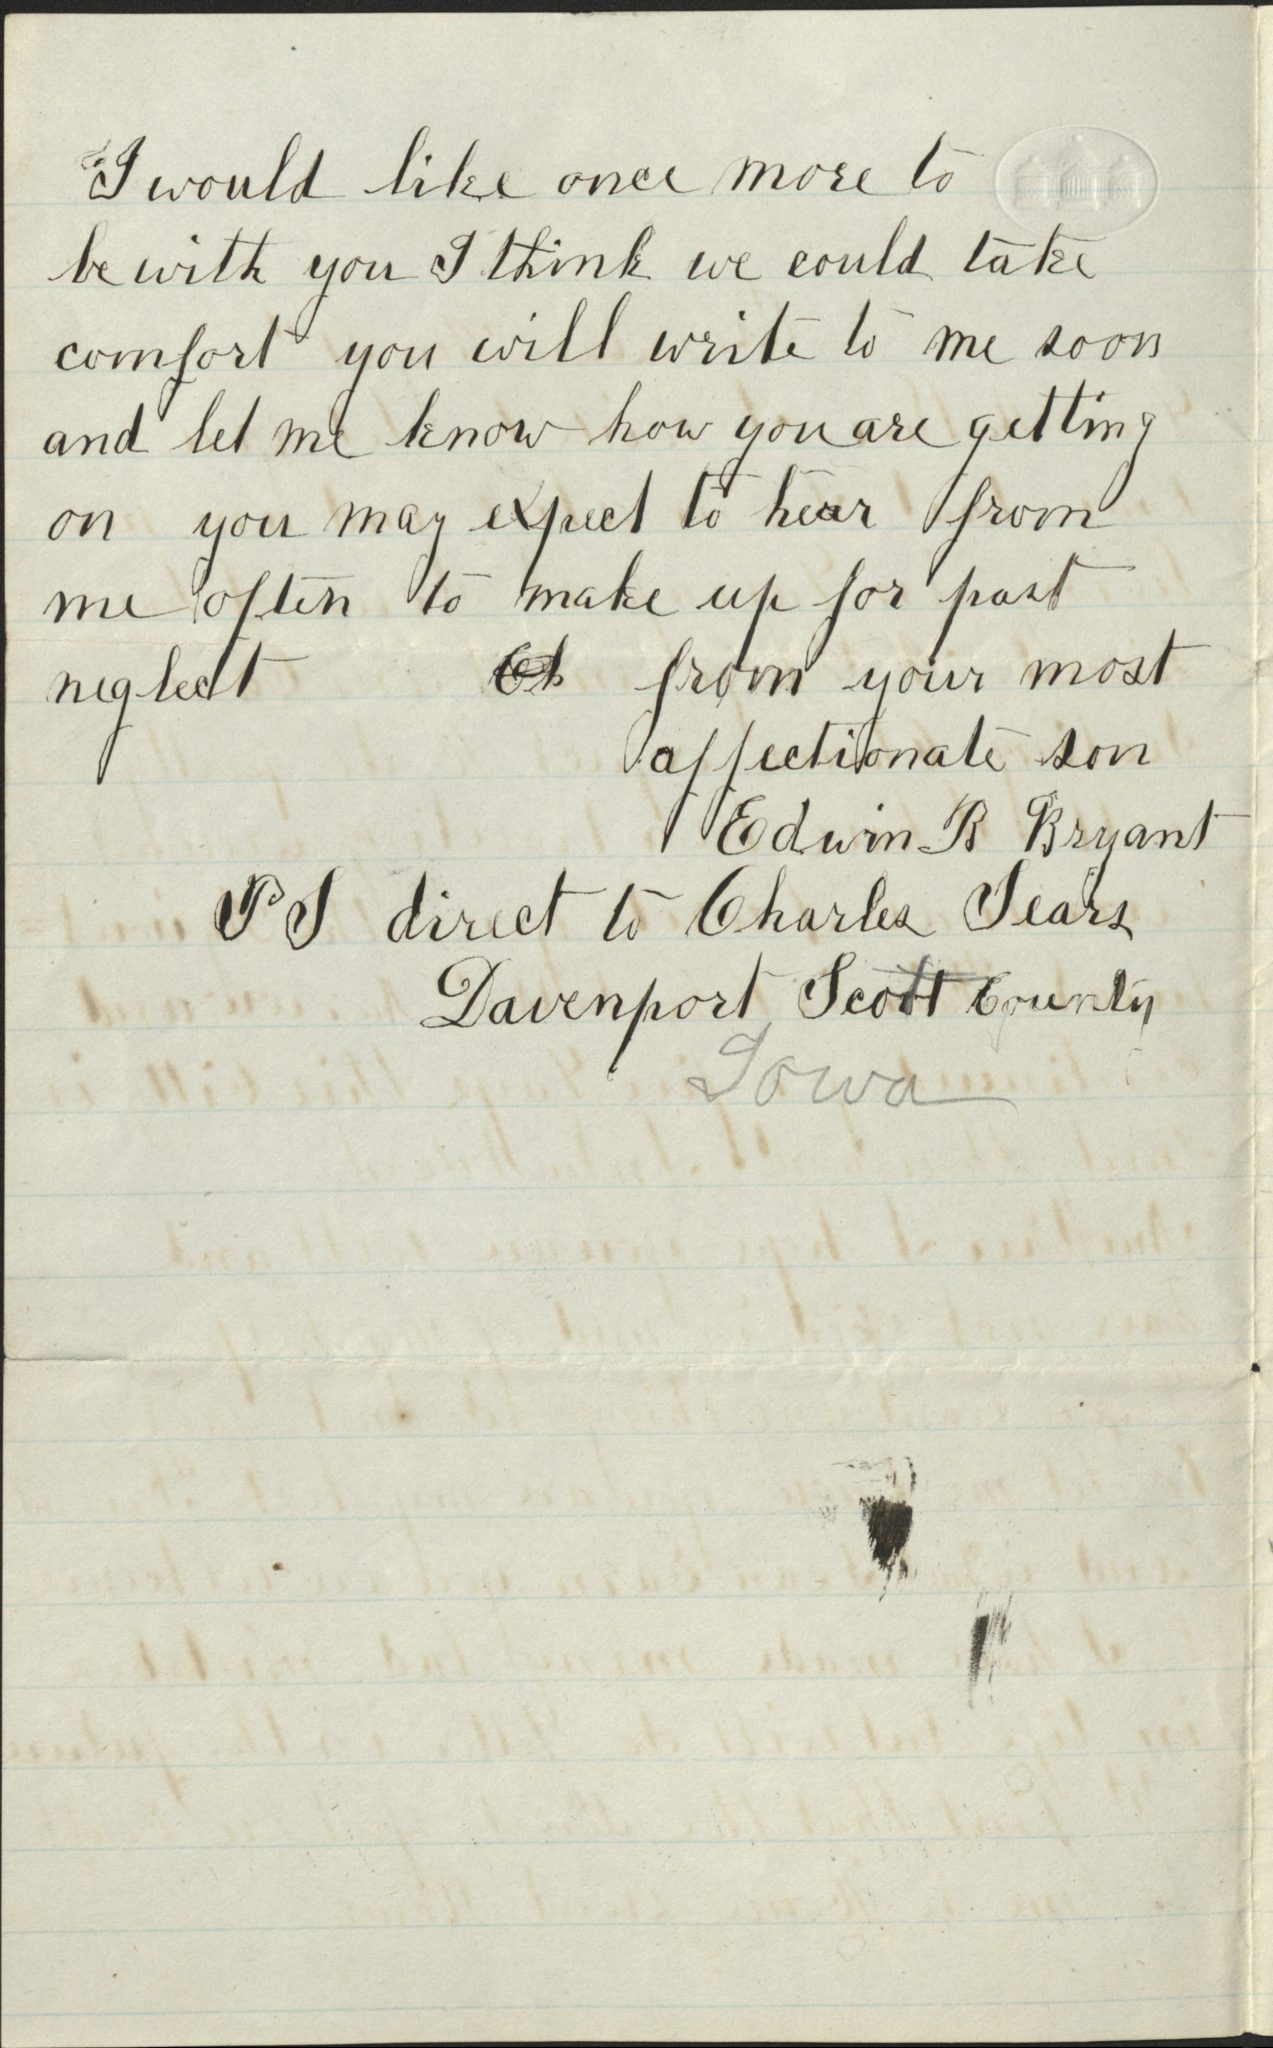 I would like once more to
be with you I think we could take
comfort you will write to me soon
and let me know how you are getting
on you may expect to hear from
me often to make up for past
neglect from your most
affectionate son
Edwin B Bryant
PS direct to Charles Sears
Davenport Scott County
Iowa